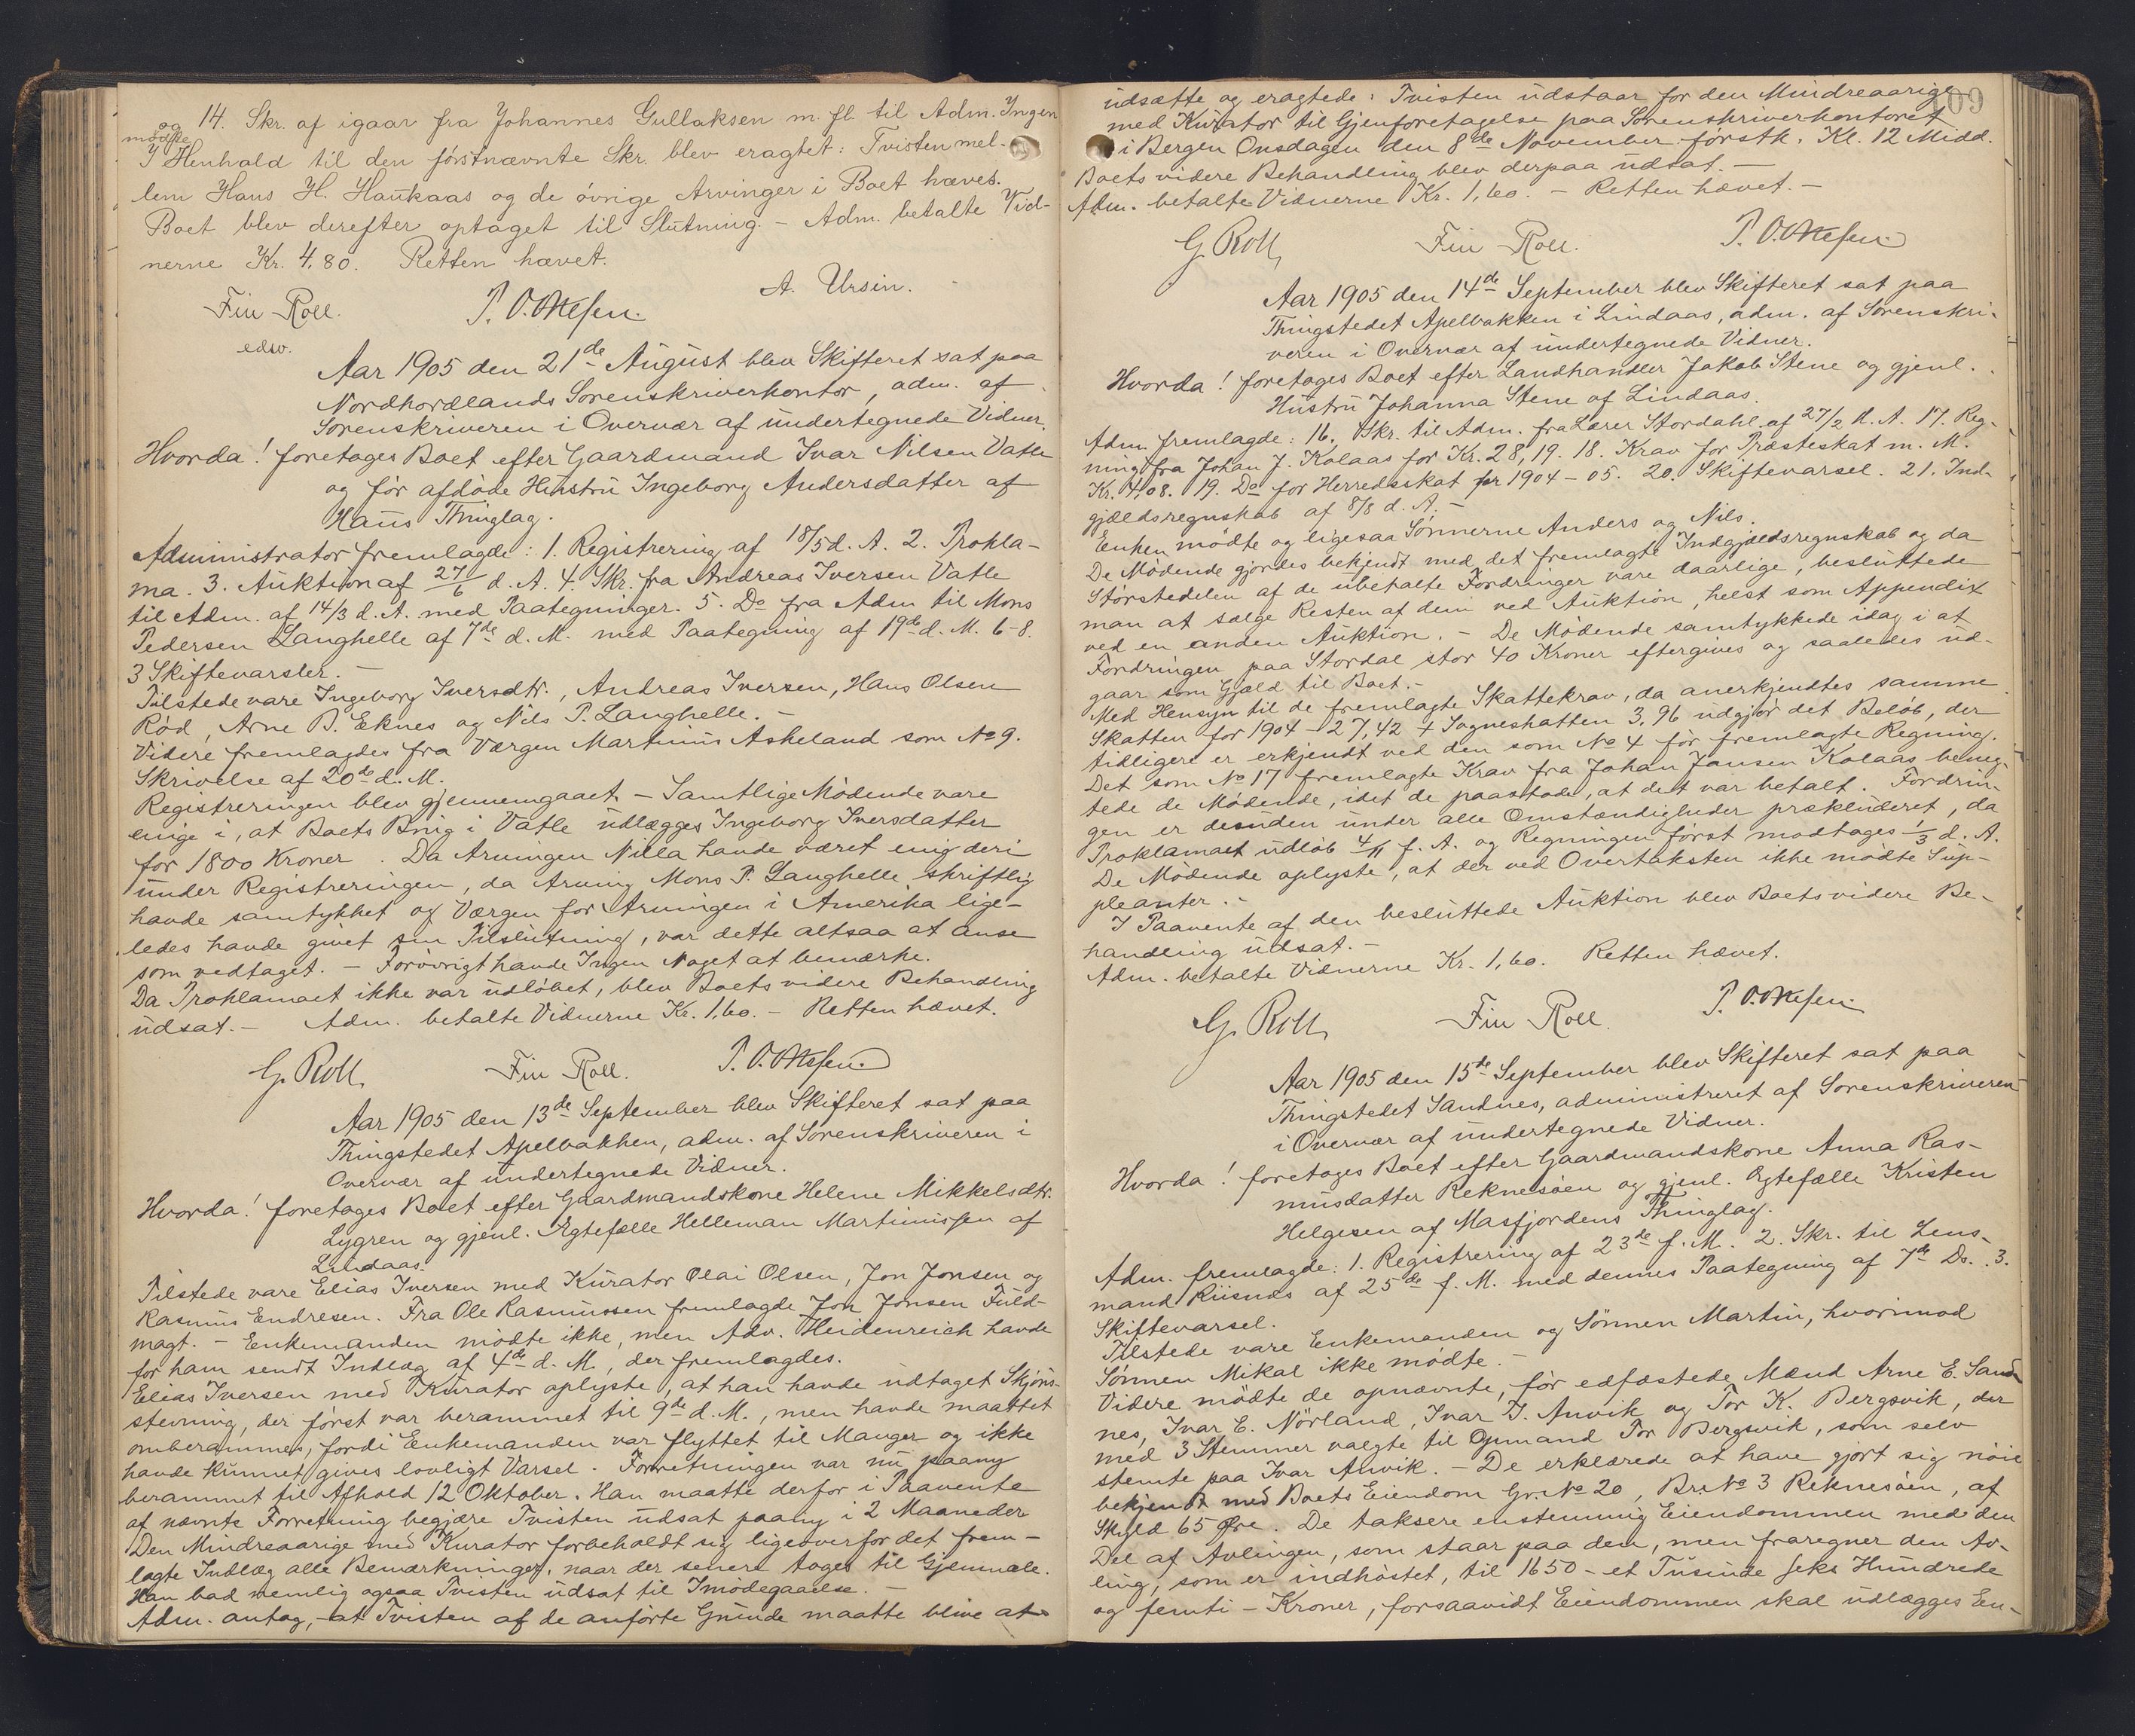 og 14. Skr. af igaar fra Johannes Gullaksen m. fl. til Adm. Ingen
mødte
I Henhold til den førstnævnte Skr. blev eragtet: Tvisten mel-
lem Hans H. Haukaas og de øvrige Arvinger i Boet hæves.
Boet blev derefter optaget til Slutning. - Adm. betalte Vid-
nerne Kr. 4,80. Retten hævet.
A. Ursin.
Fin Roll. P. O. Ottesen.
edsv.
Aar 1905 den 21de August blev Skifteret sat paa
Nordhordlands Sorenskriverkontor, adm. af
Sorenskriveren i Overvær af undertegnede Vidner.
Hvorda! foretages Boet efter Gaardmand Ivar Nilsen Vatle
og før afdøde Hustru Ingeborg Andersdatter af
Haus Thinglag.
Administrator fremlagde: 1. Registrering af 18/5 d. A. 2. Prokla-
ma. 3. Auktion af 27/6 d. A. 4. Skr. fra Andreas Iversen Vatle
til Adm. af 14/3 d. A. med Paategninger. 5. Do fra Adm til Mons
Pedersen Langhelle af 7de d. M. med Paategning af 19de d. M. 6-8.
3 Skiftevarsler. -
Tilstede vare Ingeborg Iversdtr., Andreas Iversen, Hans Olsen
Rød, Arne B. Eknes og Nils P. Langhelle. -
Videre fremlagdes fra Værgen Martinus Askeland som No 9.
Skrivelse af 20de d. M.
Registreringen blev gjennemgaaet. - Samtlige Mødende vare
enige i, at Boets Brug i Vatle udlægges Ingeborg Iversdatter
for 1800 Kroner. Da Arvingen Nilla havde været enig deri
under Registreringen, da Arving Mons P. Langhelle skriftlig
havde samtykket og Værgen for Arvingen i Amerika lige-
ledes havde givet sin Tilslutning, var dette altsaa at anse
som vedtaget. - Forøvrigt havde Ingen Noget at bemærke.
Da Proklamaet ikke var udløbet, blev Boets videre Behandling
udsat. - Adm. betalte Vidnerne Kr. 1,60. - Retten hævet.
G. Roll. Fin Roll. P. O. Ottesen.
Aar 1905 den 13de September blev Skifteret sat paa
Thingstedet Apelbakken, adm. af Sorenskriveren i
Overvær af undertegnede Vidner.
Hvorda! foretages Boet efter Gaardmandskone Helene Mikkelsdtr.
Lygren og gjenl. Ægtefælle Helleman Martinussen af
Lindaas.
Tilstede vare Elias Iversen med Kurator Olai Olsen, Jon Jonsen og
Rasmus Endresen. Fra Ole Rasmussen fremlagde Jon Jonsen Fuld-
magt. - Enkemanden mødte ikke, men Adv. Heidenreich havde
for ham sendt Indlæg af 4de d. M., der fremlagdes.
Elias Iversen med Kurator oplyste, at han havde udtaget Skjøns-
stevning, der først var berammet til 9de d. M., men havde maattet
omberammes, fordi Enkemanden var flyttet til Manger og ikke
havde kunnet gives lovligt Varsel. Forretningen var nu paany
berammet til Afhold 12 Oktober. Han maatte derfor i Paavente
af nævnte Forretning begjære Tvisten udsat paany i 2 Maaneder
Den Mindreaarige med Kurator forbeholdt sig ligeoverfor det frem-
lagte Indlæg alle Bemærkninger, naar der senere tages til Gjenmæle.
Han bad nemlig ogsaa Tvisten udsat til Imødegaaelse. -
Adm. antog, at Tvisten af de anførte Grunde maatte blive at
109
udsætte og eragtede: Tvisten udstaar for den Mindreaarige
med Kurator til Gjenforetagelse paa Sorenskriverkontoret
i Bergen Onsdagen den 8de November førstk. Kl. 12 Midd.
Boets videre Behandling blev derpaa udsat. -
Adm. betalte Vidnerne Kr. 1,60. - Retten hævet. -
G. Roll, Fin Roll. P. O. Ottesen.
Aar 1905 den 14de September blev Skifteret sat paa
Thingstedet Apelbakken i Lindaas, adm. af Sorenskri-
veren i Overvær af undertegnede Vidner.
Hvorda! foretages Boet efter Landhandler Jakob Stene og gjenl.
Hustru Johanna Stene af Lindaas.
Adm. fremlagde: 16. Skr. til Adm. fra Lærer Stordahl af 27/2 d. A. 17. Reg-
ning fra Johan J. Kolaas for Kr. 28,19. 18. Krav for Præsteskat m. M.
Kr. 4,08. 19. Do for Herredsskat pr 1904-05. 20. Skiftevarsel. 21. Ind-
gjældsregnskab af 8/8 d. A. -
Enken mødte og ligesaa Sønnerne Anders og Nils.
De Mødende gjordes bekjendt med det fremlagte Indgjældsregnskab og da
Størstedelen af de ubetalte Fordringer vare daarlige, besluttede
man at sælge Resten af dem ved Auktion, helst som Appendix
ved en anden Auktion. - De Mødende samtykkede idag i at
Fordringen paa Stordal stor 40 Kroner eftergives og saaledes ud-
gaar som Gjæld til Boet. -
Med Hensyn til de fremlagte Skattekrav, da anerkjendtes samme.
Skatten for 1904 - 27,42 + Sogneskatten 3,96 udgjør det Beløb, der
tidligere er erkjendt ved den som No 4 før fremlagte Regning.
Det som No 17 fremlagte Krav fra Johan Jansen Kolaas beneg-
tede de Mødende, idet de paastode, at det var betalt. Fordrin-
gen er desuden under alle Omstændigheder prækluderet, da
Proklamaet udløb 4/11 f. A. og Regningen først modtages 1/3 d. A.
De Mødende oplyste, at der ved Overtaksten ikke mødte Sup-
pleanter. -
I Paavente af den besluttede Auktion blev Boets videre Be-
handling udsat. -
Adm. betalte Vidnerne Kr. 1,60. Retten hævet.
G. Roll, Fin Roll. P. O. Ottesen.
Aar 1905 den 15de September blev Skifteret sat paa
Thingstedet Sandnes, administreret af Sorenskriveren
i Overvær af undertegnede Vidner.
Hvorda! foretages Boet efter Gaardmandskone Anna Ras-
musdatter Reknesøen og gjenl. Ægtefælle Kristen
Helgesen af Masfjordens Thinglag.
Adm. fremlagde: 1. Registrering af 23de f. M. 2. Skr. til Lens-
mand Riisnæs af 25de f. M. med dennes Paategning af 7de Ds. 3.
Skiftevarsel.
Tilstede vare Enkemanden og Sønnen Martin, hvorimod
Sønnen Mikal ikke mødte. -
Videre mødte de opnævnte, før edfæstede Mænd Arne E. Sand-
nes, Ivar E. Nørland, Ivar I. Anvik og Tor K. Bergsvik, der
med 3 Stemmer valgte til Opmand Tor Bergsvik, som selv
stemte paa Ivar Anvik. - De erklærede at have gjort sig nøie
bekjendt med Boets Eiendom Gr. No 20, Br. No 3 Reknesøen, af
Skyld 65 Øre. De taksere enstemmig Eiendommen med den
Del af Avlingen, som staar paa den, men fraregner den Av-
ling, som er indhøstet, til 1650 - et Tusinde seks Hundrede
og femti - Kroner, forsaavidt Eiendommen skal udlægges En-